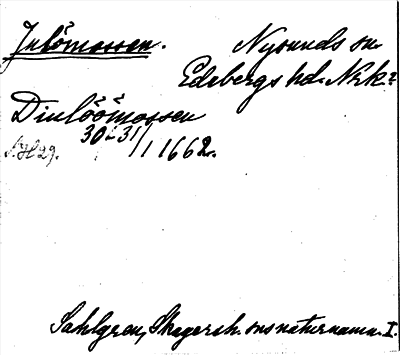 Julömossen.
Nysunds sn
Edsbergs hd. Nrk.
Diulöömossen
30-31/1 1662.
Sahlgren, Skagersh. sns naturnamn. I.